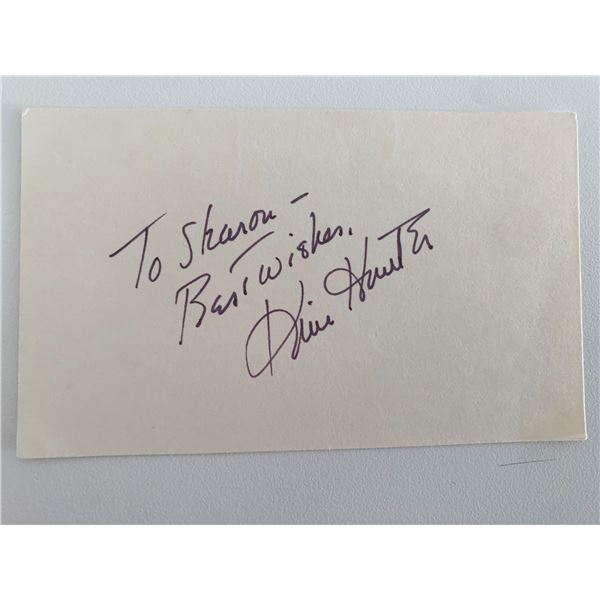 To Sharon -
Best wishes,
Kim Hunter